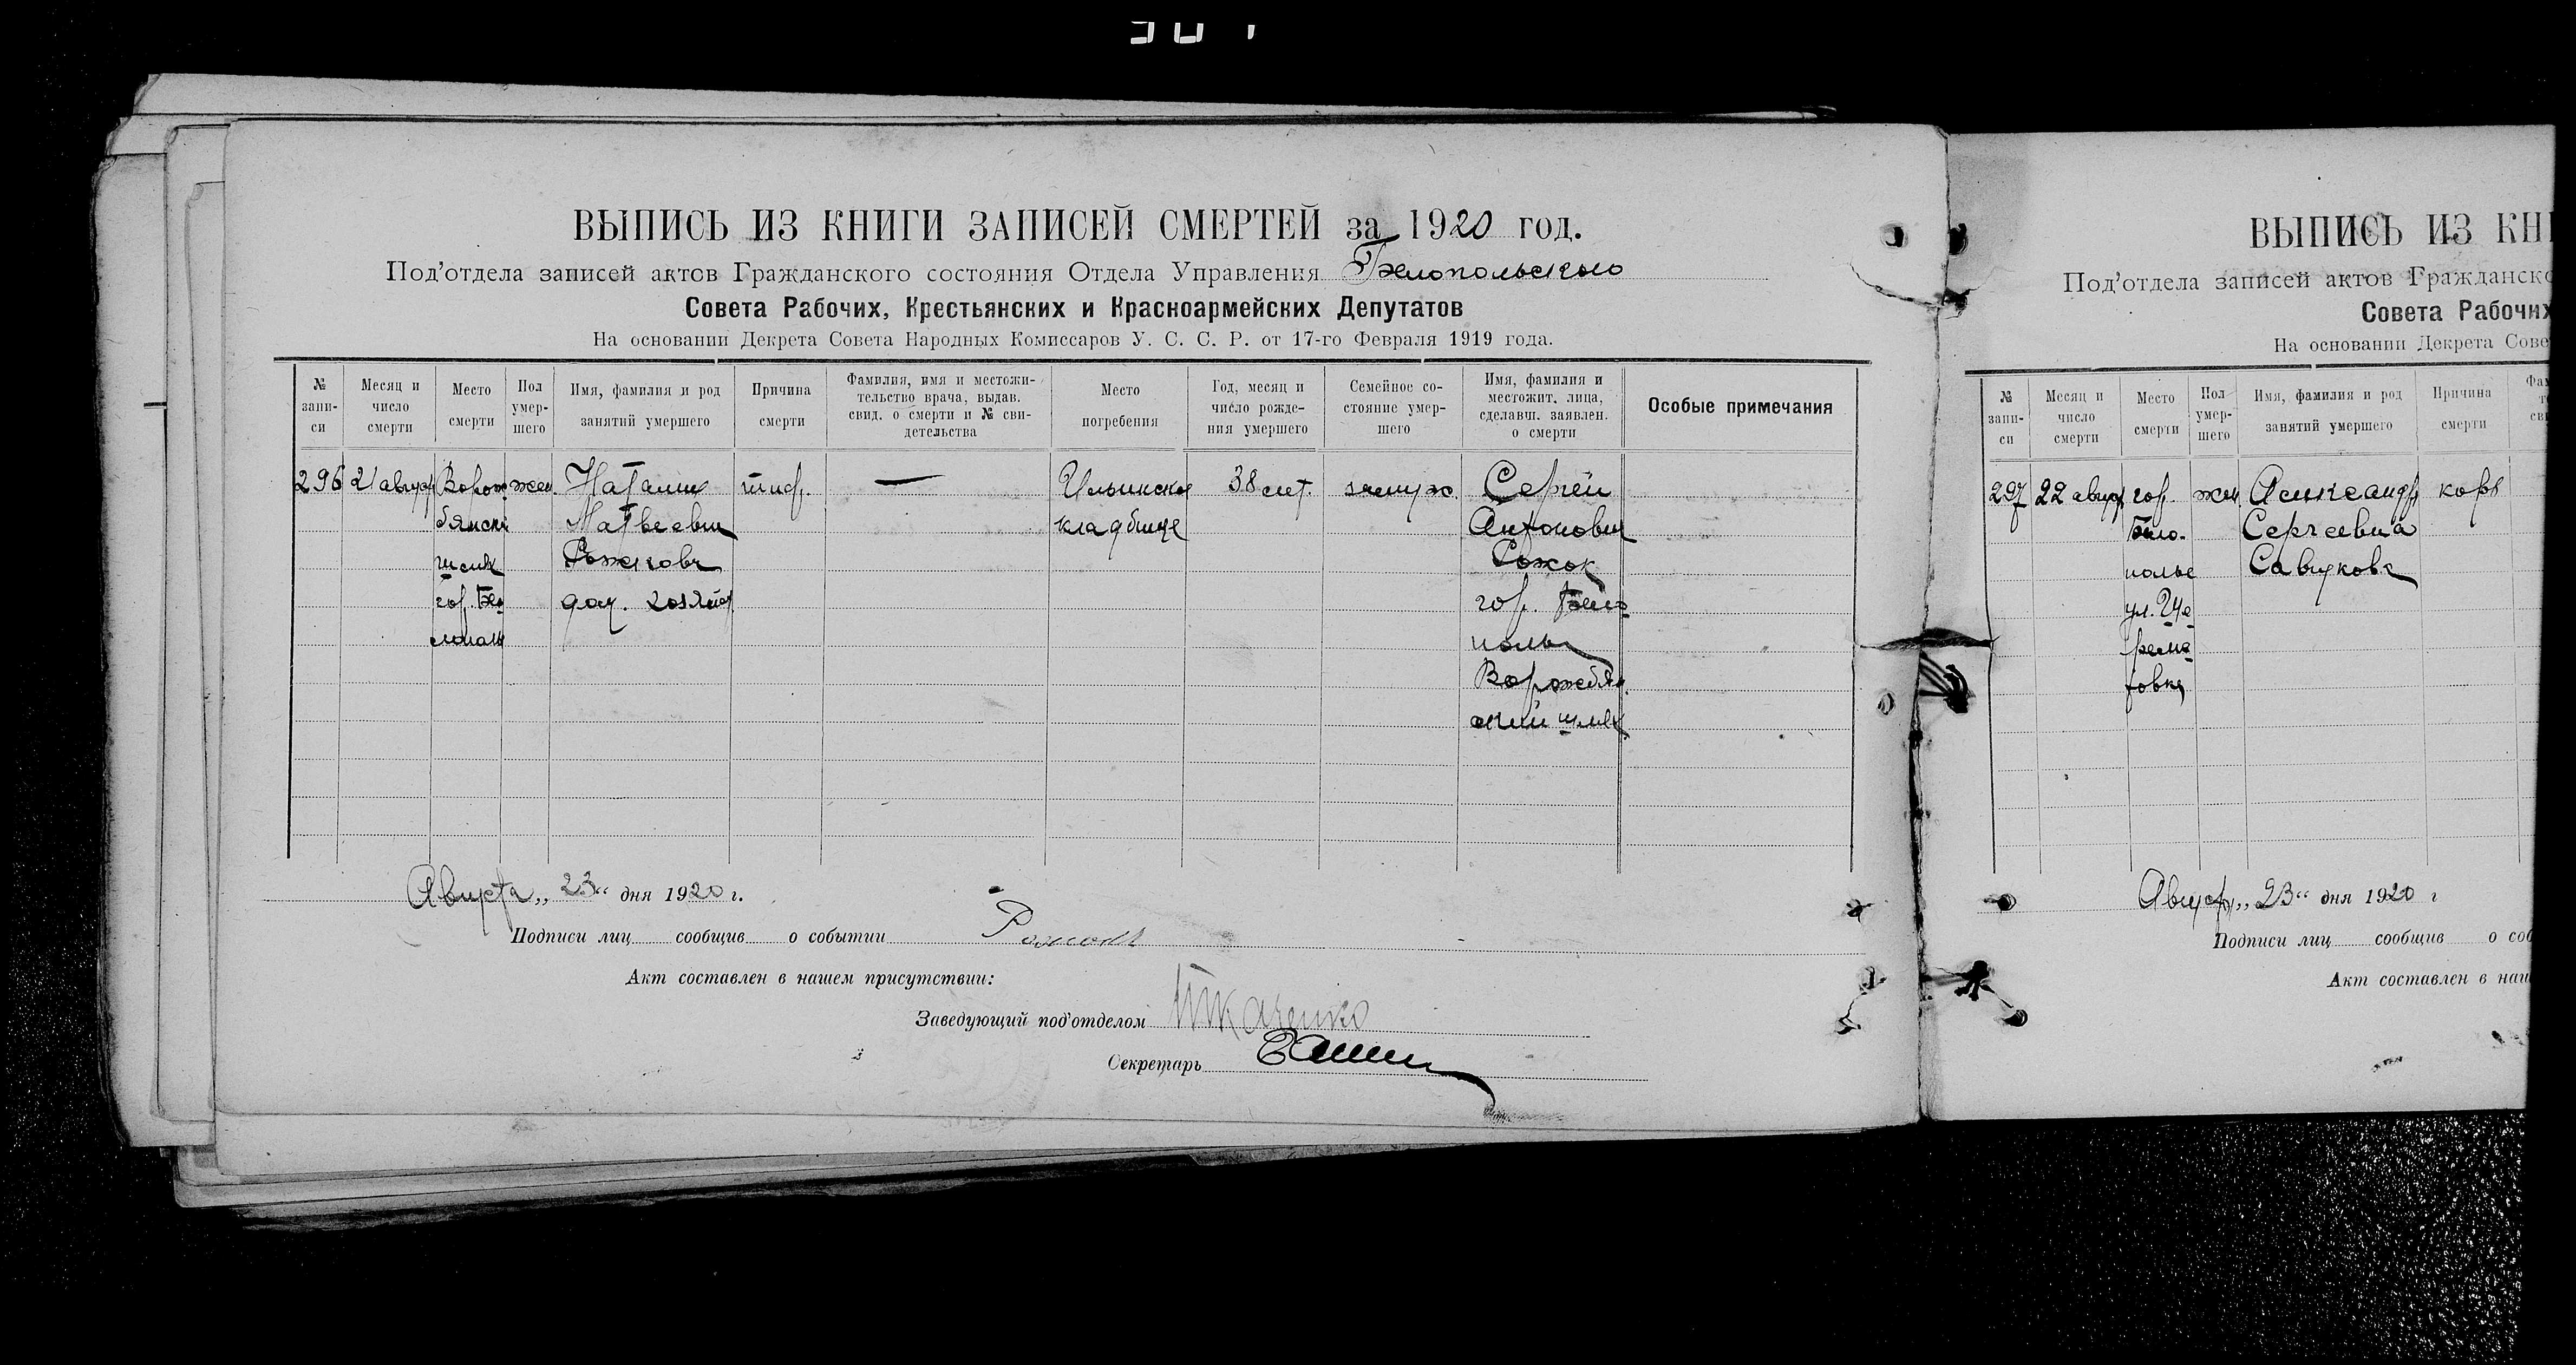 ВЫПИСЬ ИЗ КНИГИ ЗАПИСЕЙ СМЕРТЕЙ за 1920 год.
Под’отдела записей актов Гражданского состояния Отдела Управления Белопольского
Совета Рабочих, Крестьянских и Красноармейских Депутатов
На основании Декрета Совета Народных Комиссаров У. С. С. Р. от 17-го Февраля 1919 года.
№ запи-
си
Месяц и
число
смерти
Место
смерти
Пол
умер-
шего
Имя, фамилия и род
занятий умершего
Причина
смерти
Фамилия, имя и местожи-
тельство врача, выдав.
свид. о смерти и № сви-
детельства
Место
погребения
Год, месяц и
число рожде-
ния умершего
Семейное со-
стояние умер-
шего
Имя, фамилия и
местожит. лица,
сделавш. заявлен.
о смерти
Особые примечания
296
21 август
Ворож
бянски
шлях
гор. Бе
лополь
жен.
Наталия
Матвеевна
Рожкова
дом. хозяйка
тиф.
—
Ильинское
кладбище
38 лет.
замуж.
Сергей
Антонович
Рожок
гор. Бело
полье
Ворожбян
ский шлях
Августа „23“ дня 1920 г.
Подписи лиц сообщив о событии Рожок
Акт составлен в нашем присутствии:
Заведующий под’отделом Ткаченко
Секретарь
ВЫПИСЬ ИЗ КНИ
Под’отдела записей актов Гражданско
Совета Рабочих
На основании Декрета Сове
№
запи-
си
Месяц и
число
смерти
Место
смерти
Пол
умер-
шего
Имя, фамилия и род
занятий умершего
Причина
смерти
297
22 август
гор.
Бело-
полье
ул. Ще
рема
ковка
жен.
Александра
Сергеевна
Савукова
корь
Август „23“ дня 1920 г
Подписи лиц сообщив о соб
Акт составлен в наш